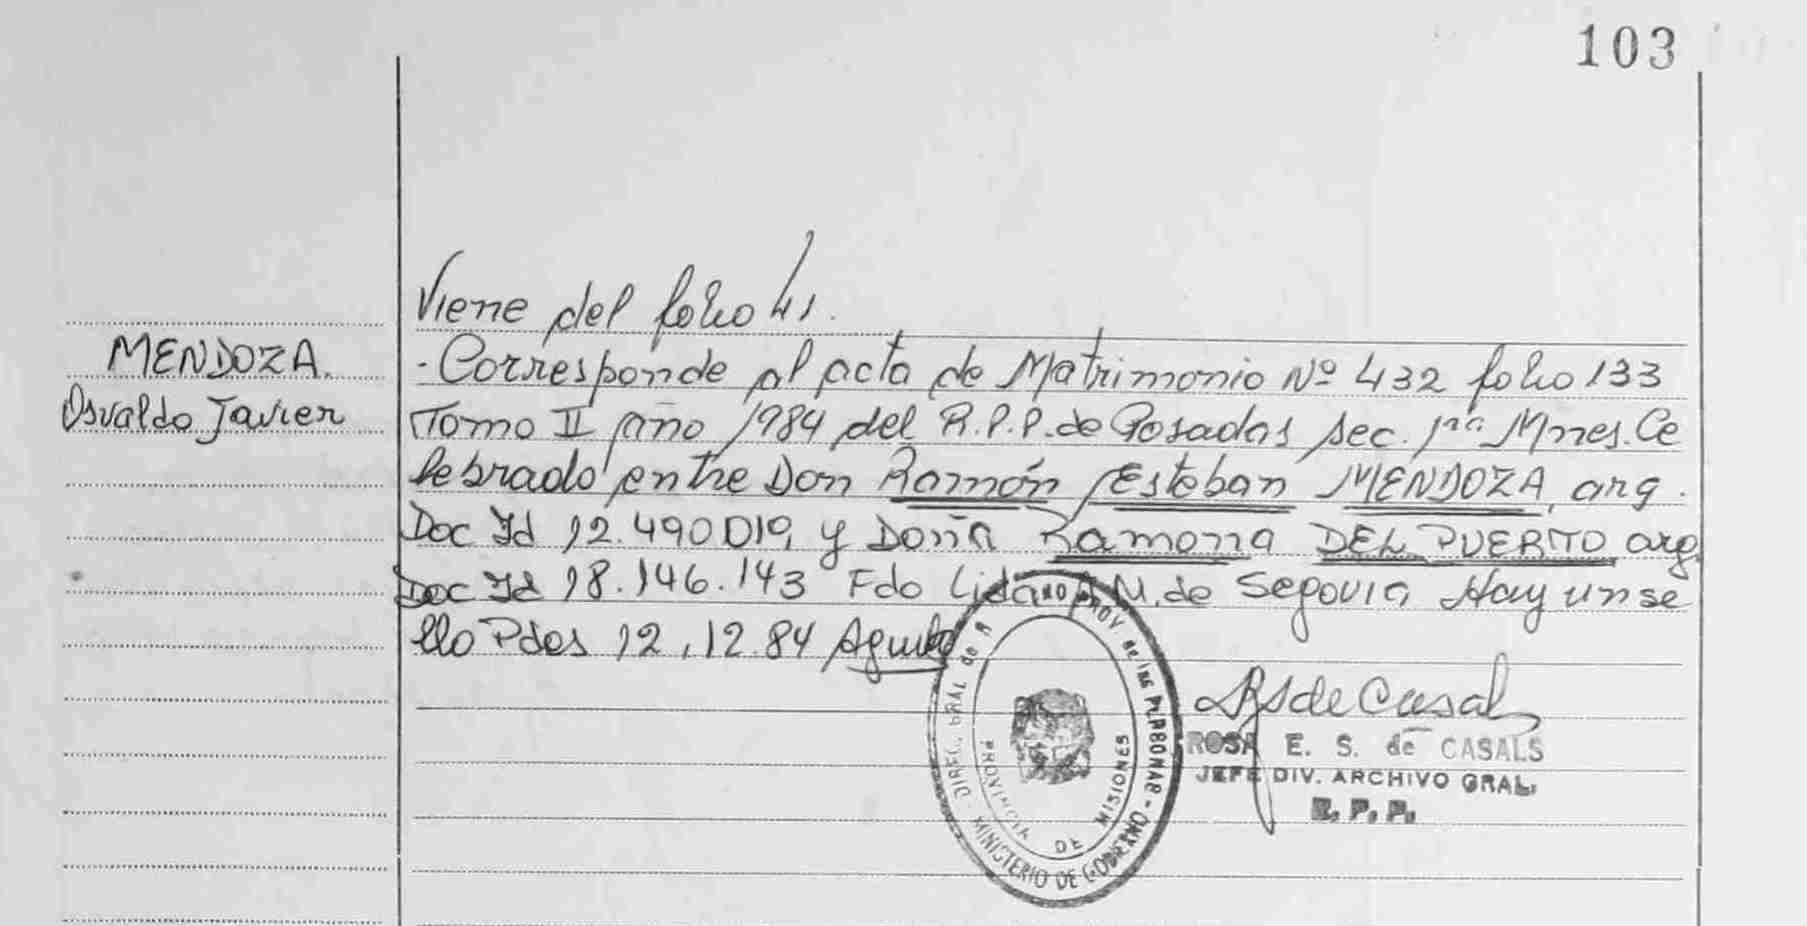 103
Viene del folio 41.
MENDOZA.
Osvaldo Javier
- Corresponde al acta de Matrimonio Nº 432 folio 133
Tomo II año 1984 del R.P.P. de Posadas sec. 1ra Mnes. Ce
lebrado entre Don Ramón Esteban MENDOZA arg.
Doc Id 12.490.019, y Doña Ramona DEL PUERTO arg.
Doc Id 18.146.143 Fdo Lida N. de Segovia Hay un se
llo Pdas 12.12.84
DIREC. GRAL de PROV. de las PERSONAS - MINISTERIO DE GOBIERNO -
PROVINCIA DE MISIONES
ROSA E. S. de CASALS
JEFE DIV. ARCHIVO GRAL.
R. P. P.